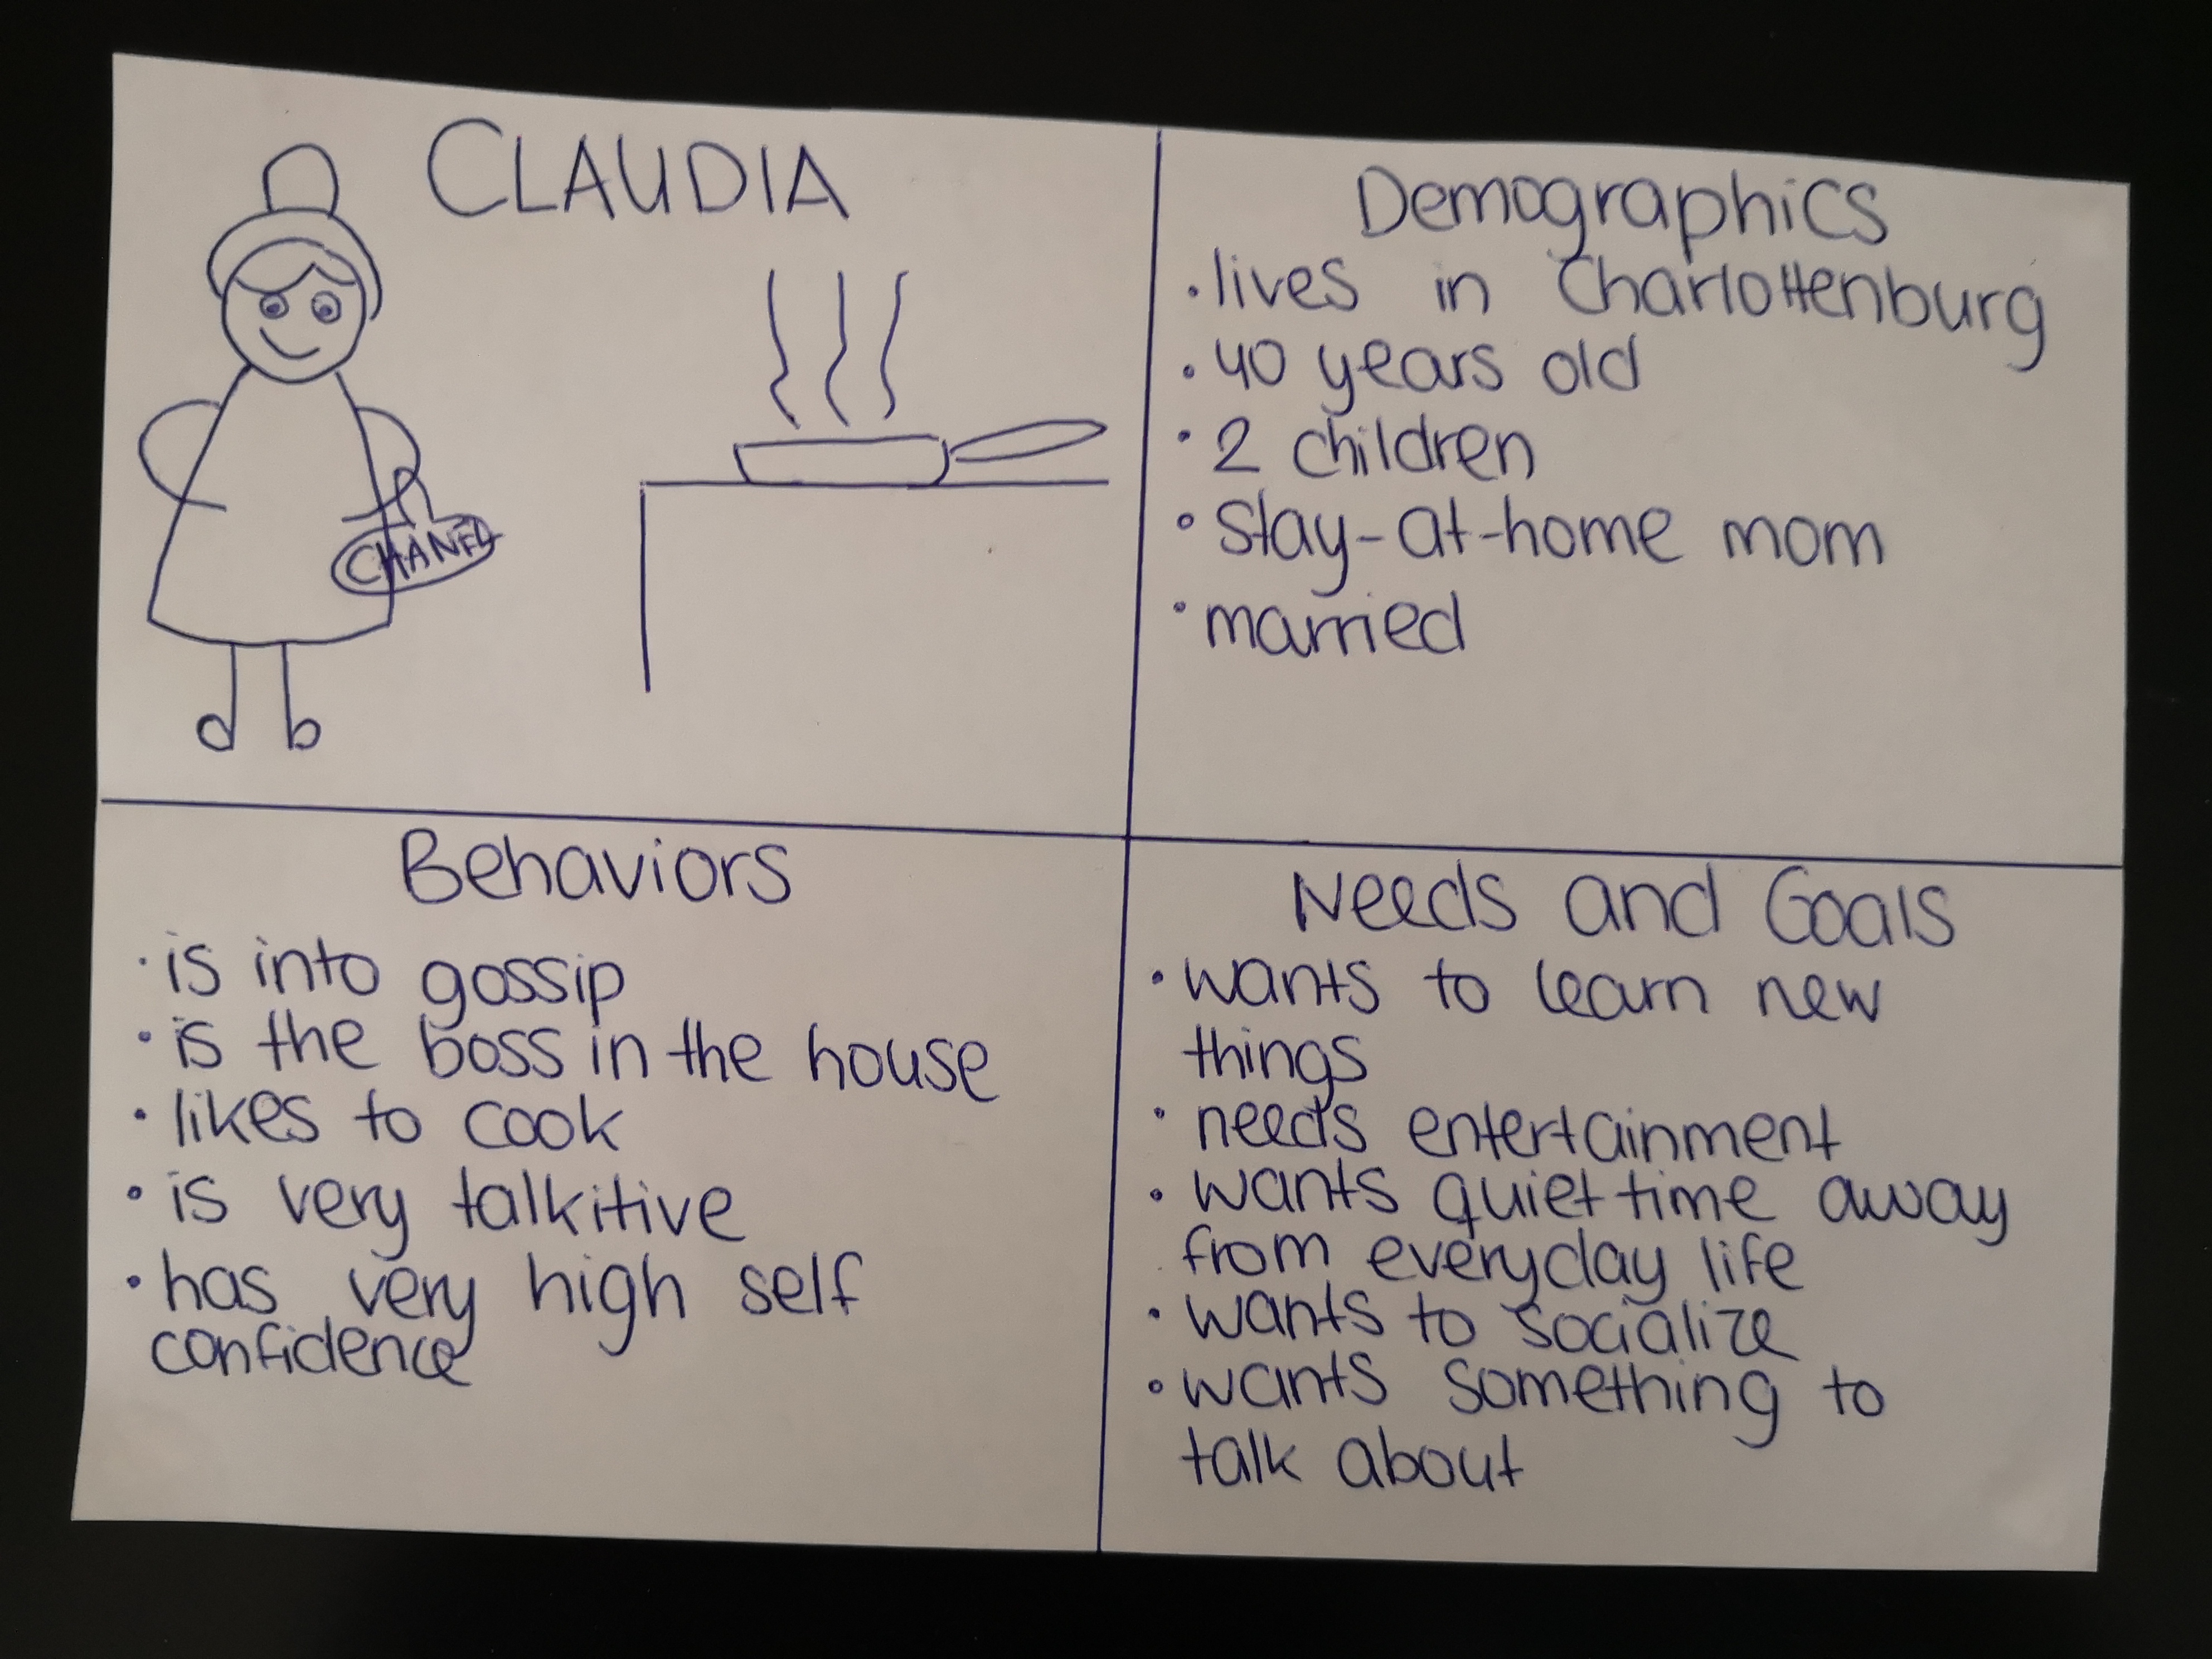 CLAUDIA
CHANEL
Demographics
• lives in Charlottenburg
• 40 years old
• 2 children
• stay-at-home mom
• married
Behaviors
• is into gossip
• is the boss in the house
• likes to cook
• is very talkitive
• has very high self
confidence
Needs and Goals
• wants to learn new
things
• needs entertainment
• wants quiet time away
from everyday life
• wants to socialize
• wants something to
talk about